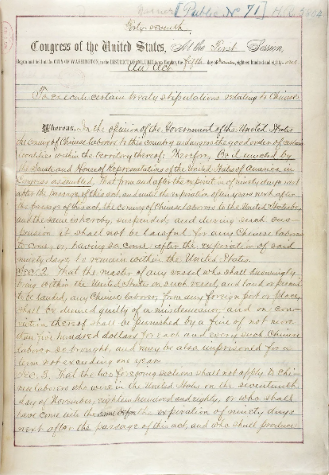 [Public No 71]
Forty-seventh
Congress of the United States, At the First Session,
Begun and held at the CITY OF WASHINGTON, in the DISTRICT OF COLUMBIA, on Monday, the fifth day of December, eighteen hundred and eighty-one
An Act
To execute certain treaty stipulations relating to Chinese.
Whereas, In the opinion of the Government of the United States
the coming of Chinese laborers to this country endangers the good order of certain
localities within the territory thereof; Therefore, Be it enacted by
the Senate and House of Representatives of the United States of America in
Congress assembled, That from and after the expiration of ninety days next
after the passage of this act, and until the expiration of ten years next after
the passage of this act, the coming of Chinese laborers to the United States be,
and the same is hereby, suspended; and during such sus-
pension it shall not be lawful for any Chinese laborer
to come, or, having so come after the expiration of said
ninety days, to remain within the United States.
Sec. 2. That the master of any vessel who shall knowingly
bring within the United States on such vessel, and land or permit
to be landed, any Chinese laborer, from any foreign port or place,
shall be deemed guilty of a misdemeanor, and on con-
viction thereof shall be punished by a fine of not more
than five hundred dollars for each and every such Chinese
laborer so brought, and may be also imprisoned for a
term not exceeding one year.
Sec. 3. That the two foregoing sections shall not apply to Chi-
nese laborers who were in the United States on the seventeenth
day of November, eighteen hundred and eighty, or who shall
have come into the same before the expiration of ninety days
next after the passage of this act, and who shall produce